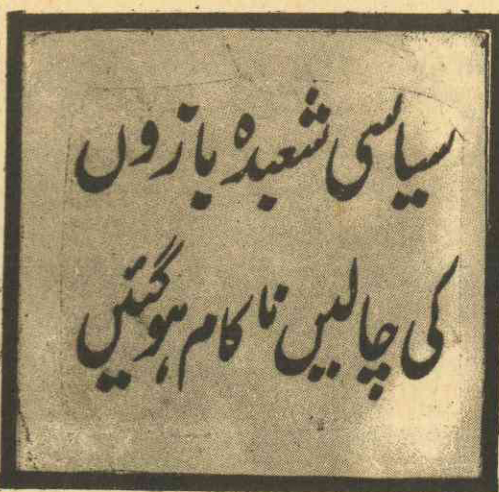 سیاسی شعبدہ بازوں
کی چالیں ناکام ہوگئیں